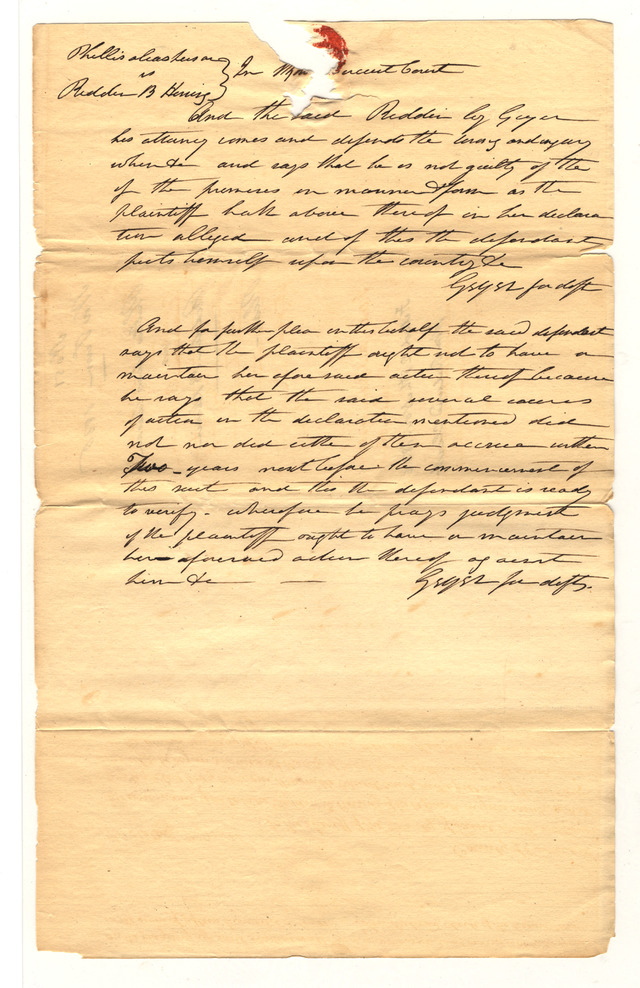 Phillis a free person
vs
Redden B Herring
In Circuit Court
And the said Redden by Geyer
his attorney comes and defends the wrong and injury
when &c and says that he is not guilty of the
of the premises in manner & form as the
plaintiff hath above thereof in her declara
tion alleged and of this the defendant
puts himself upon the country &c
Geyer for deft
And for furth plea in this behalf the said defendant
says that the plaintiff ought not to have or
maintain her aforesaid action thereof because
he says that the said several causes
of action in the declaration mentioned did
not nor did either of them accrue within
Two years next before the commencement of
this suit and this the defendant is ready
to verify. wherefore he prays judgment
if the plaintiff ought to have or maintain
her aforesaid action thereof against
him &c —
Geyer for deft.